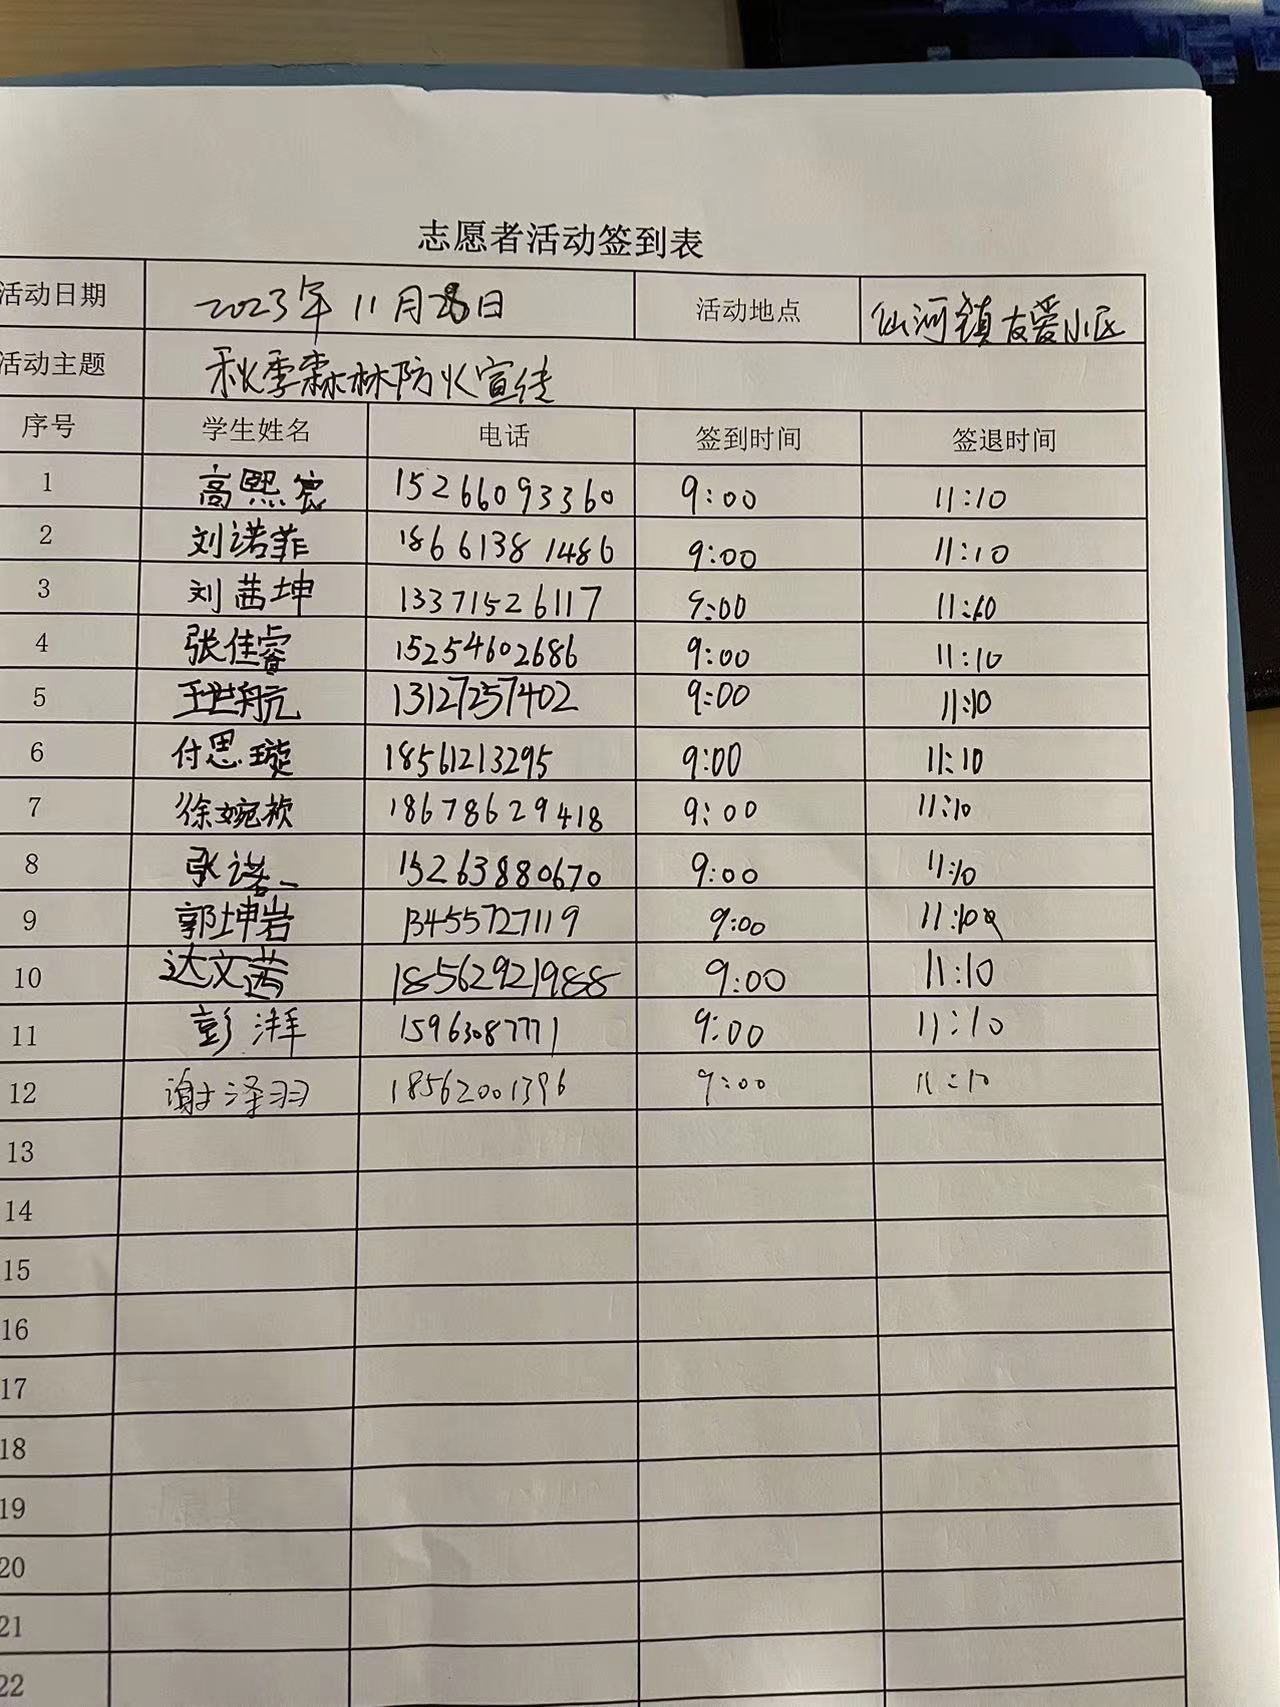 志愿者活动签到表
活动日期 2023年11月28日 活动地点 仙河镇友爱小区
活动主题 秋季森林防火宣传
序号 学生姓名 电话 签到时间 签退时间
1 高熙宸 15266093360 9:00 11:10
2 刘诺菲 18661381486 9:00 11:10
3 刘茜坤 13371526117 9:00 11:10
4 张佳睿 15254602686 9:00 11:10
5 王世航 13127257402 9:00 11:10
6 付思璇 18561213295 9:00 11:10
7 徐婉桢 18678629418 9:00 11:10
8 张诺一 15263880670 9:00 11:10
9 郭坤岩 13455727119 9:00 11:10
10 达文茜 18562921988 9:00 11:10
11 彭湃 15963087771 9:00 11:10
12 谢泽羽 18562001396 9:00 11:10
13
14
15
16
17
18
19
20
21
22